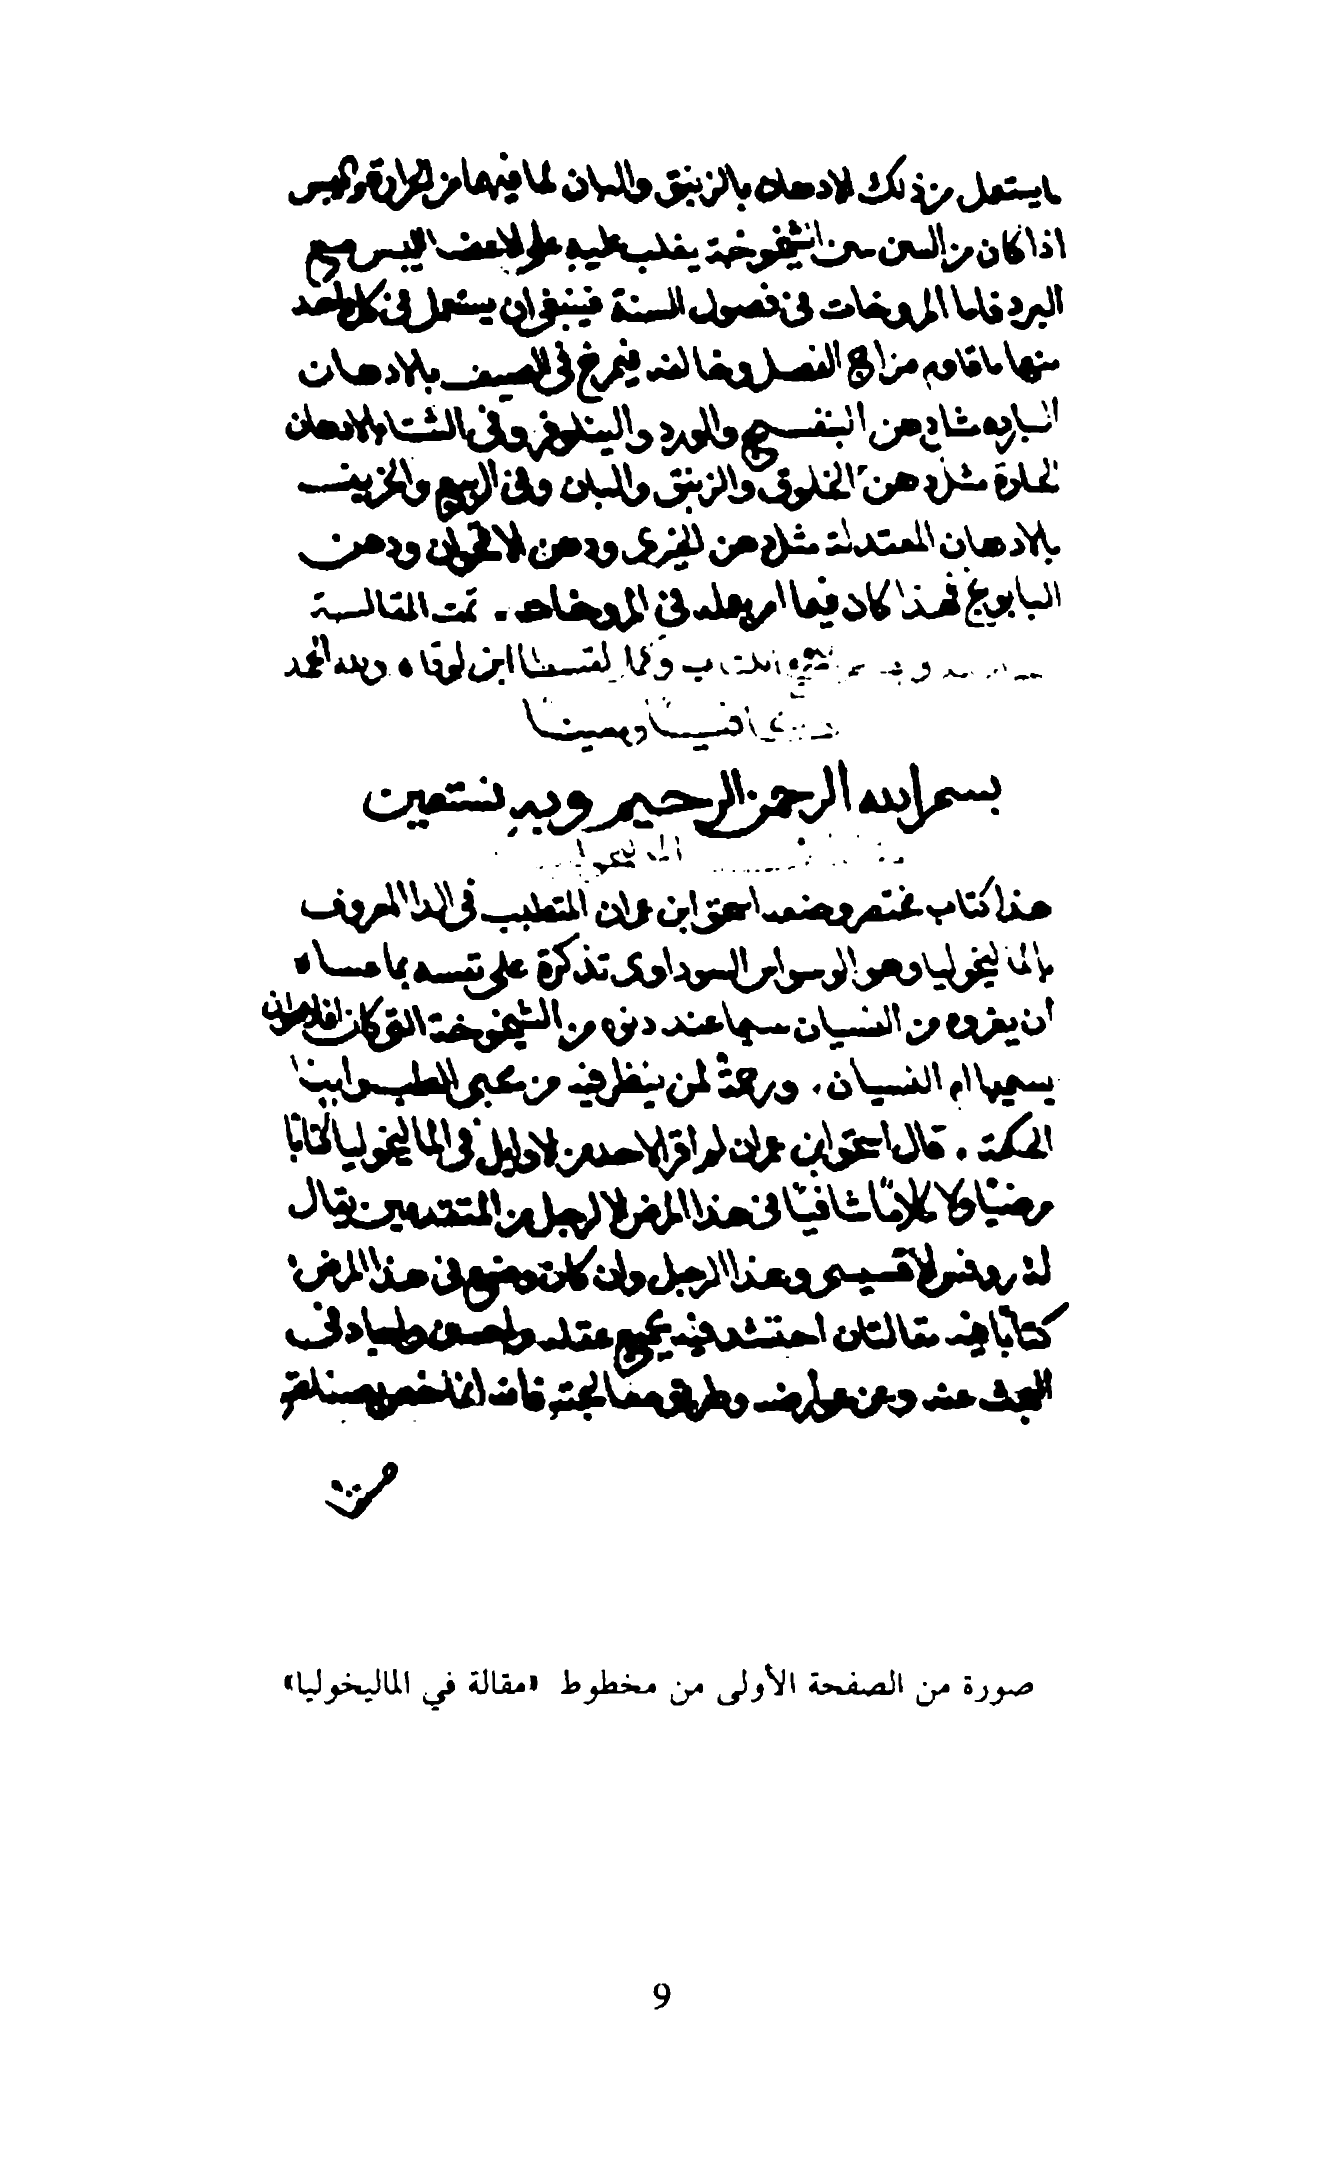 مايستعمل من ذلك الادهان بالزينبق والبان لما فيها من الحرارة واليبس
اذا كان من السن سن الشيخوخة يغلب عليه على الاعضا اليبس مع
البرد فاما المروخات في فصول السنة فينبغي ان يستعمل في كل واحد
منها ما قاوم مزاج الفصل وخالفه فيمرخ في الصيف بالادهان
الباردة مثل دهن البنفسج والورد والينلوفر وفي الشتاء بالادهان
الحارة مثل دهن الخلوق والزنبق والبان وفي الربيع والخريف
بالادهان المعتدلة مثل دهن الخيرى ودهن الاقحوان ودهن
البابونج فهذا كاد فيما امر بعلمه في المروخات . تمت المقالسة
الكتاب وكما لقسطا ابن لوقا ولله الحمد
بسم الله الرحمن الرحيم وبه نستعين
هذا كتاب مختصر وضعه اسحق ابن عمران المتطبب في الدا المعروف
بالماليخوليا وهو الوسواس السوداوى تذكرة على نفسه بما عساه
ان يعروه من النسيان سيما عند دنوه من الشيخوخة التي كان افلاطون
يسميها ام النسيان . ورحمةً لمن ينظر فيه من محبى الطب وابينا
الحكمة . قال اسحق ابن عمران لم اقرا لاحد من الاوايل في الماليخوليا كتابًا
مرضيًا ولا كلامًا شافيًا في هذا المرض الا لرجل من المتقدمين يقال
له روفس الافسيسى وهذا الرجل وان كان وضع في هذا المرض
كتابًا فيه مقالتان احتشد فيه بجميع عقله واحسن واجاد في
البحث عنه وعن عوارضه وطريق معالجته فانه انما خص بصناعته
صورة من الصفحة الأولى من مخطوط «مقالة في الماليخوليا»
9